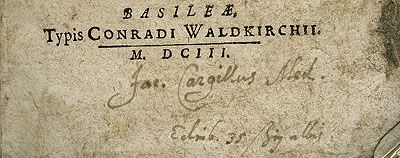 BASILEÆ,
Typis CONRADI WALDKIRCHII.
M. DCIII.
Jac. Cargillus Med.
Edinb. 35